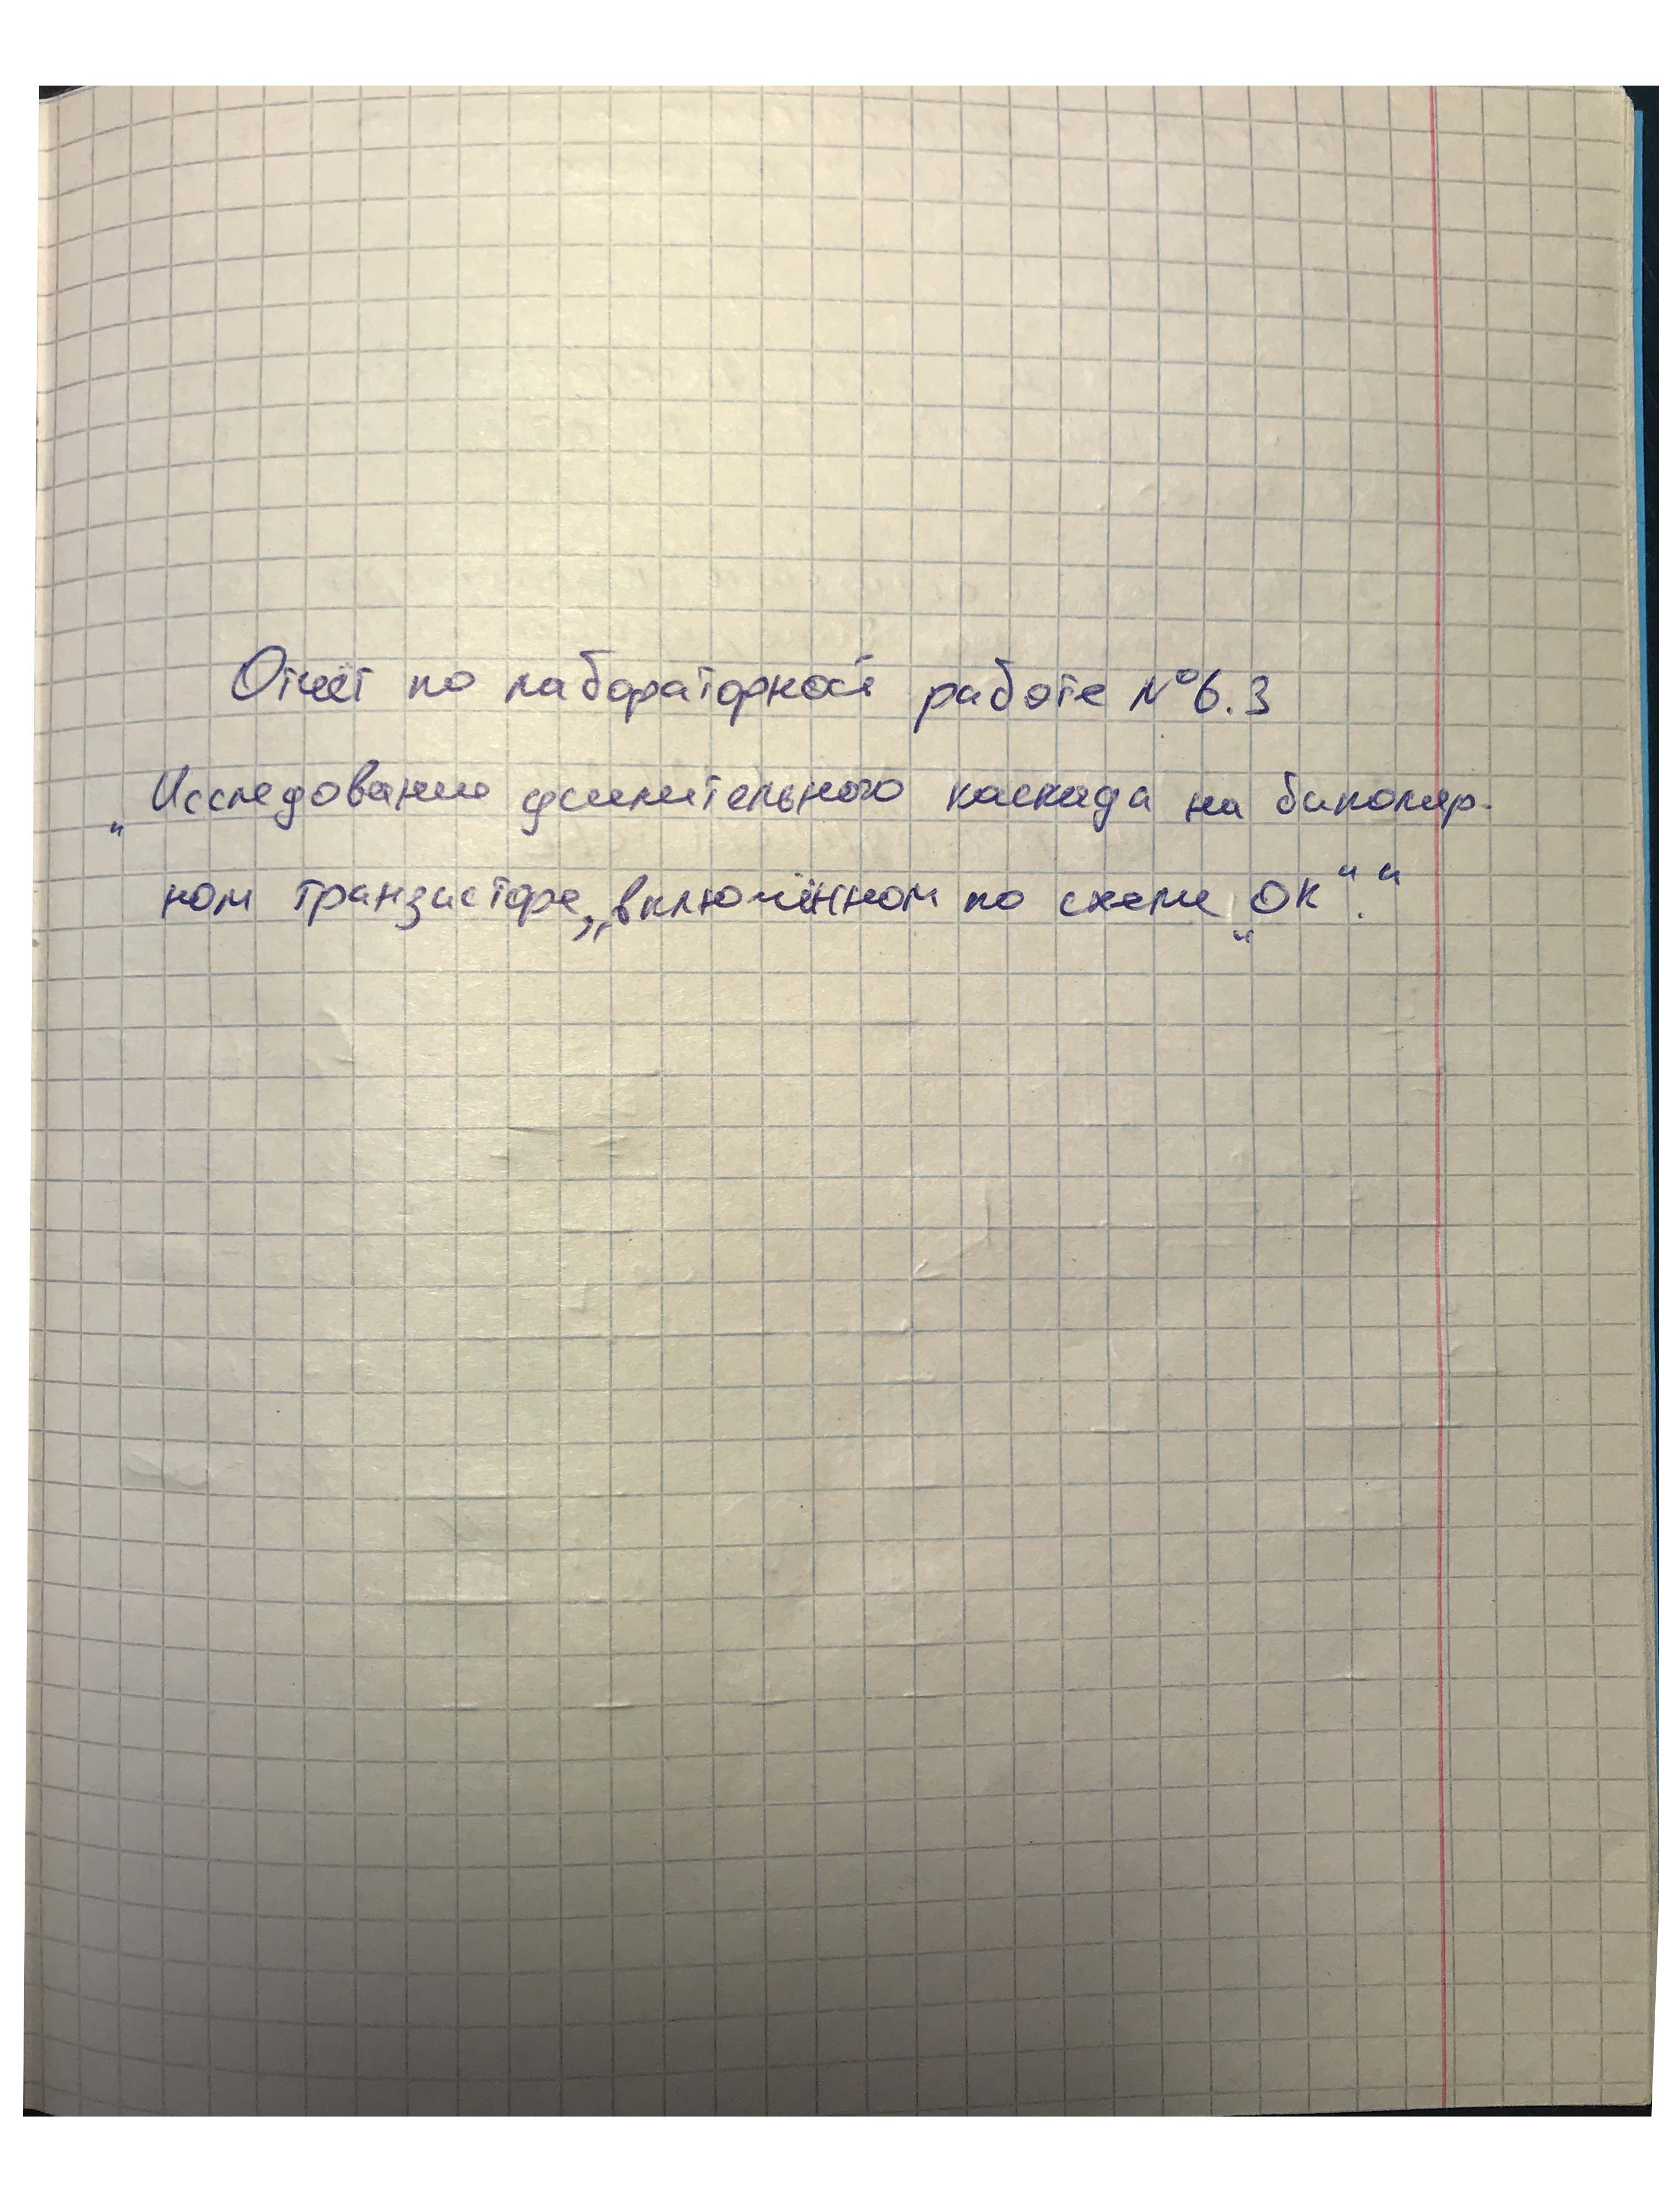 Отчёт по лабораторной работе №6.3
„Исследование усилительного каскада на биполяр-
ном транзисторе, „включённом по схеме „ОК“.“